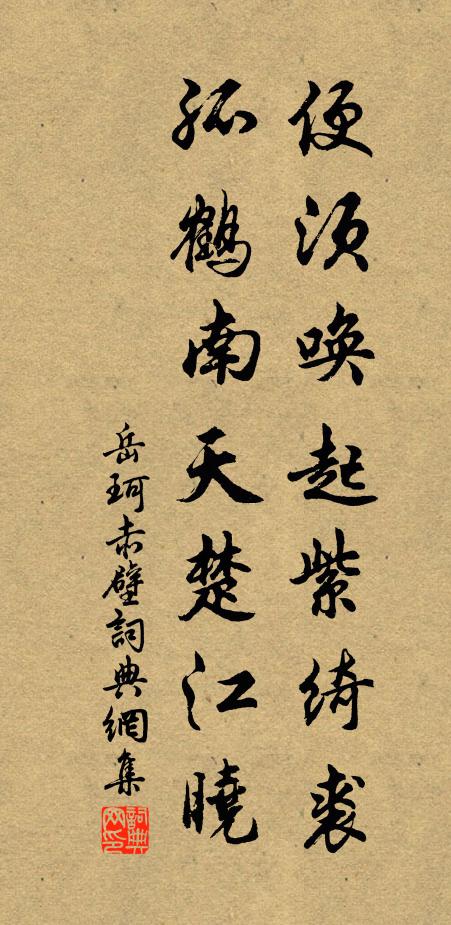 便須喚起紫綺裘
孤鶴南天楚江曉
岳珂赤壁詞典網集
詞典網印